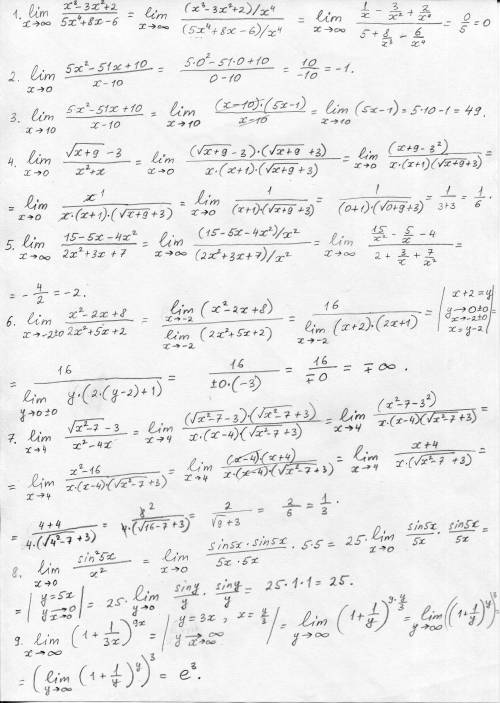 1. lim x→∞ (x³-3x²+2)/(5x⁴+8x-6) = lim x→∞ ((x³-3x²+2)/x⁴)/((5x⁴+8x-6)/x⁴) = lim x→∞ (1/x - 3/x² + 2/x⁴)/(5 + 8/x³ - 6/x⁴) = 0/5 = 0
2. lim x→0 (5x²-51x+10)/(x-10) = (5·0²-51·0+10)/(0-10) = 10/-10 = -1.
3. lim x→10 (5x²-51x+10)/(x-10) = lim x→10 ((x-10)·(5x-1))/(x-10) = lim x→10 (5x-1) = 5·10-1 = 49.
4. lim x→0 (√(x+9) -3)/(x²+x) = lim x→0 ((√(x+9) -3)·(√(x+9) +3))/(x·(x+1)·(√(x+9) +3)) = lim x→0 (x+9-3²)/(x·(x+1)(√(x+9)+3)) =
= lim x→0 x¹/(x·(x+1)·(√(x+9)+3)) = lim x→0 1/((x+1)·(√(x+9)+3)) = 1/((0+1)·(√(0+9)+3)) = 1/(3+3) = 1/6.
5. lim x→∞ (15-5x-4x²)/(2x²+3x+7) = lim x→∞ ((15-5x-4x²)/x²)/((2x²+3x+7)/x²) = lim x→∞ (15/x² - 5/x - 4)/(2 + 3/x + 7/x²) =
= -4/2 = -2.
6. lim x→-2±0 (x²-2x+8)/(2x²+5x+2) = lim x→-2 (x²-2x+8)/lim x→-2 (2x²+5x+2) = 16/lim x→-2 (x+2)·(2x+1) = |x+2=y y→0±0 x→-2±0 x=y-2| =
= 16/lim y→0±0 y·(2·(y-2)+1) = 16/(±0·(-3)) = 16/∓0 = ∓∞.
7. lim x→4 (√(x²-7) -3)/(x²-4x) = lim x→4 ((√(x²-7)-3)·(√(x²-7)+3))/(x·(x-4)(√(x²-7)+3)) = lim x→4 (x²-7-3²)/(x·(x-4)(√(x²-7)+3)) =
= lim x→4 (x²-16)/(x·(x-4)·(√(x²-7)+3)) = lim x→4 ((x-4)·(x+4))/(x·(x-4)·(√(x²-7)+3)) = lim x→4 (x+4)/(x·(√(x²-7)+3)) =
= (4+4)/(4·(√(4²-7)+3)) = 8²/(4·(√(16-7)+3)) = 2/(√9+3) = 2/6 = 1/3.
8. lim x→0 sin²5x/x² = lim x→0 (sin5x·sin5x)/(5x·5x) ·5·5 = 25·lim x→0 sin5x/5x · sin5x/5x =
= |y=5x y→0 x→0| = 25·lim y→0 siny/y · siny/y = 25·1·1 = 25.
9. lim x→∞ (1+1/3x)^9x = |y=3x, x=y/3 y→∞ x→∞| = lim y→∞ (1+1/y)^(9·y/3) = lim y→∞ ((1+1/y)^y)^3 =
= (lim y→∞ (1+1/y)^y)^3 = e³.